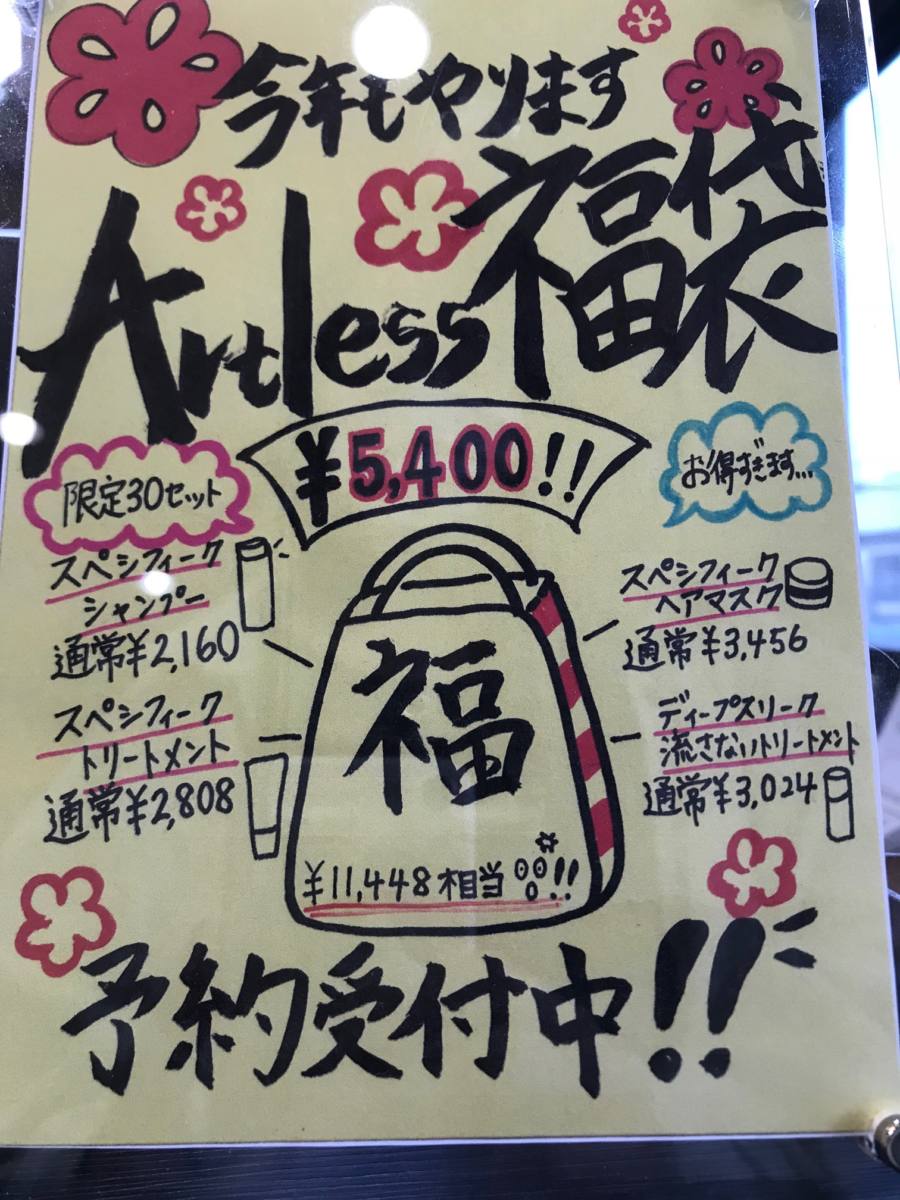 今年もやります
Artless福袋
¥5,400!!
限定30セット
お得すぎます…
スペシフィーク
シャンプー
通常¥2,160
スペシフィーク
ヘアマスク
通常¥3,456
スペシフィーク
トリートメント
通常¥2,808
ディープスリーク
流さないトリートメント
通常¥3,024
福
¥11,448相当!!
予約受付中!!